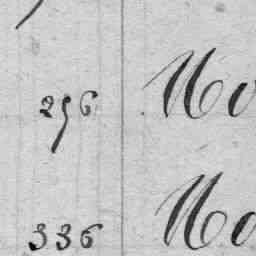 296 Mo
336 Mo